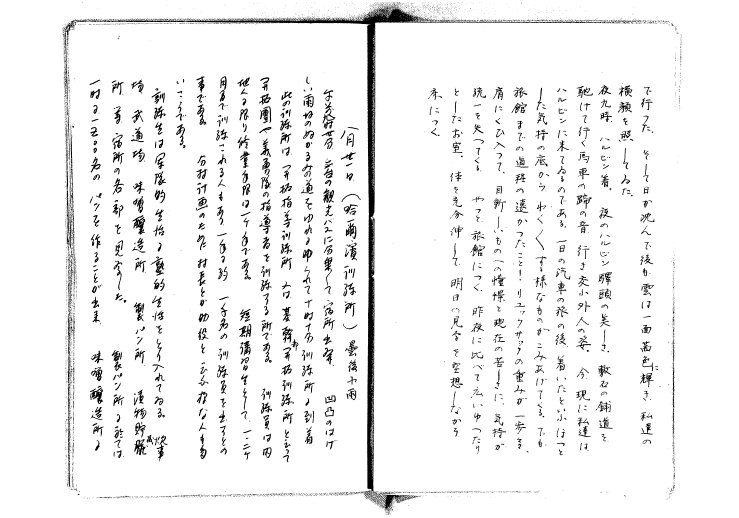 で行った。そして日が沈んで後も、雲は一面茜色に輝き、私達の
横顔を照してゐた。
夜九時、ハルビン着。夜のハルビン驛頭の美しさ、敷石の舗道を
駈けて行く馬車の蹄の音、行き交ふ外人の姿、今、現に私達は
ハルビンに来てゐるのである。一日の汽車の旅の後、着いたといふほっと
した気持の底からわく〱する様なものがこみあげてくる。でも
旅館までの道程の遠かったこと！リュックサックの重みが一歩毎、
肩にくひ入って、目新しいものへの憧憬と現在の苦しさに、気持が
統一を失ってくる。やっと旅館につく。昨夜に比べて広いゆったり
としたお室。体を充分伸して明日の見学を空想しながら
床につく。
八月廿一日（哈爾濱訓練所）曇後小雨
午前 二台の観光バスに分乗して宿所出発。凹凸のはげ
しい雨のぬかるみの道をゆられゆられて十時十分訓練所に到着
此の訓練所は「開拓指導訓練所」又は基幹開拓訓練所と云って
開拓團や義勇隊の指導者を訓練する所である。訓練員は内
地人に限り修業年限は一ケ年である。短期講習生として一、二ケ
月間で訓練される人もあり一年に約一千名の訓練員を出すとの
事である。分村計画のため村長とか助役と云ふ様な人も多
いさうである。
訓練生は軍隊的生活と塾的生活をとり入れてゐる。炊事
場 武道場 味噌醸造所 製パン所 漬物貯藏
所 等宿所の各部を見学した。製パン所に於ては
一時に一五〇〇名のパンを作ることが出来 味噌醸造所に